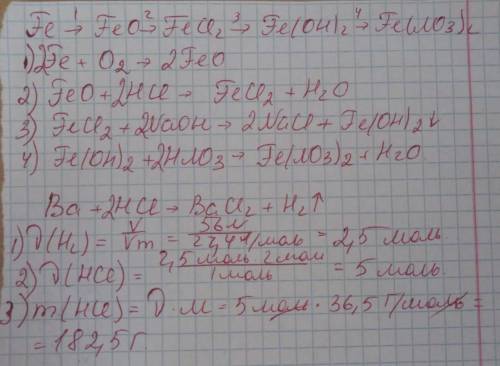 Fe →¹ FeO →² FeCl₂ →³ Fe(OH)₂ →⁴ Fe(NO3)₂
1) 2Fe + O₂ → 2FeO
2) FeO + 2HCl → FeCl₂ + H₂O
3) FeCl₂ + 2NaOH → 2NaCl + Fe(OH)₂↓
4) Fe(OH)₂ + 2HNO3 → Fe(NO3)₂ + H₂O
Ba + 2HCl → BaCl₂ + H₂↑
1) ν(H₂) = V/Vm = 56л/22,4л/моль = 2,5 моль
2) ν(HCl) = 2,5 моль · 2 моль/1 моль = 5 моль
3) m(HCl) = ν · M = 5 моль · 36,5 г/моль =
= 182,5 г